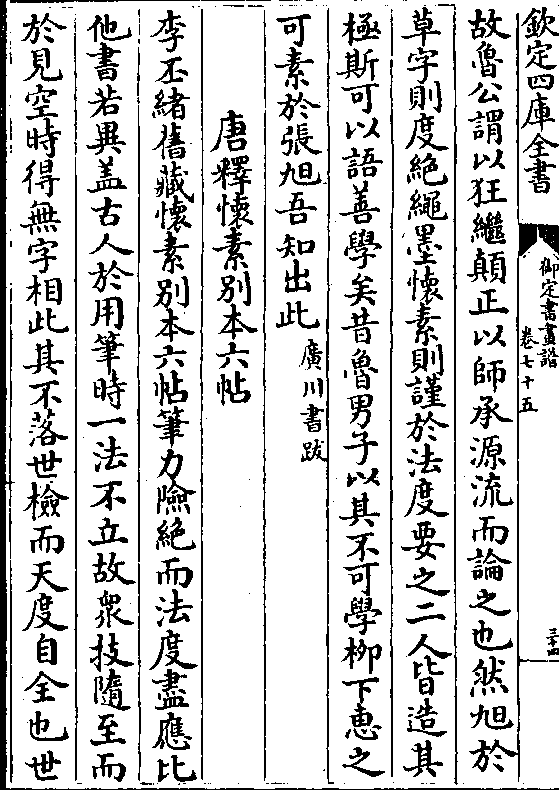 欽定四庫全書
御定書畫譜
卷七十五
三十四
故魯公謂以狂繼顛正以師承源流而論之也然旭於
草字則度絶繩墨懷素則謹於法度要之二人皆造其
極斯可以語善學矣昔魯男子以其不可學栁下惠之
可素於張旭吾知出此廣川書跋
唐釋懷素别本六帖
李丕緒舊藏懷素别本六帖筆力險絶而法度盡應比
他書若異盖古人於用筆時一法不立故衆技隨至而
於見空時得無字相此其不落世檢而天度自全也世